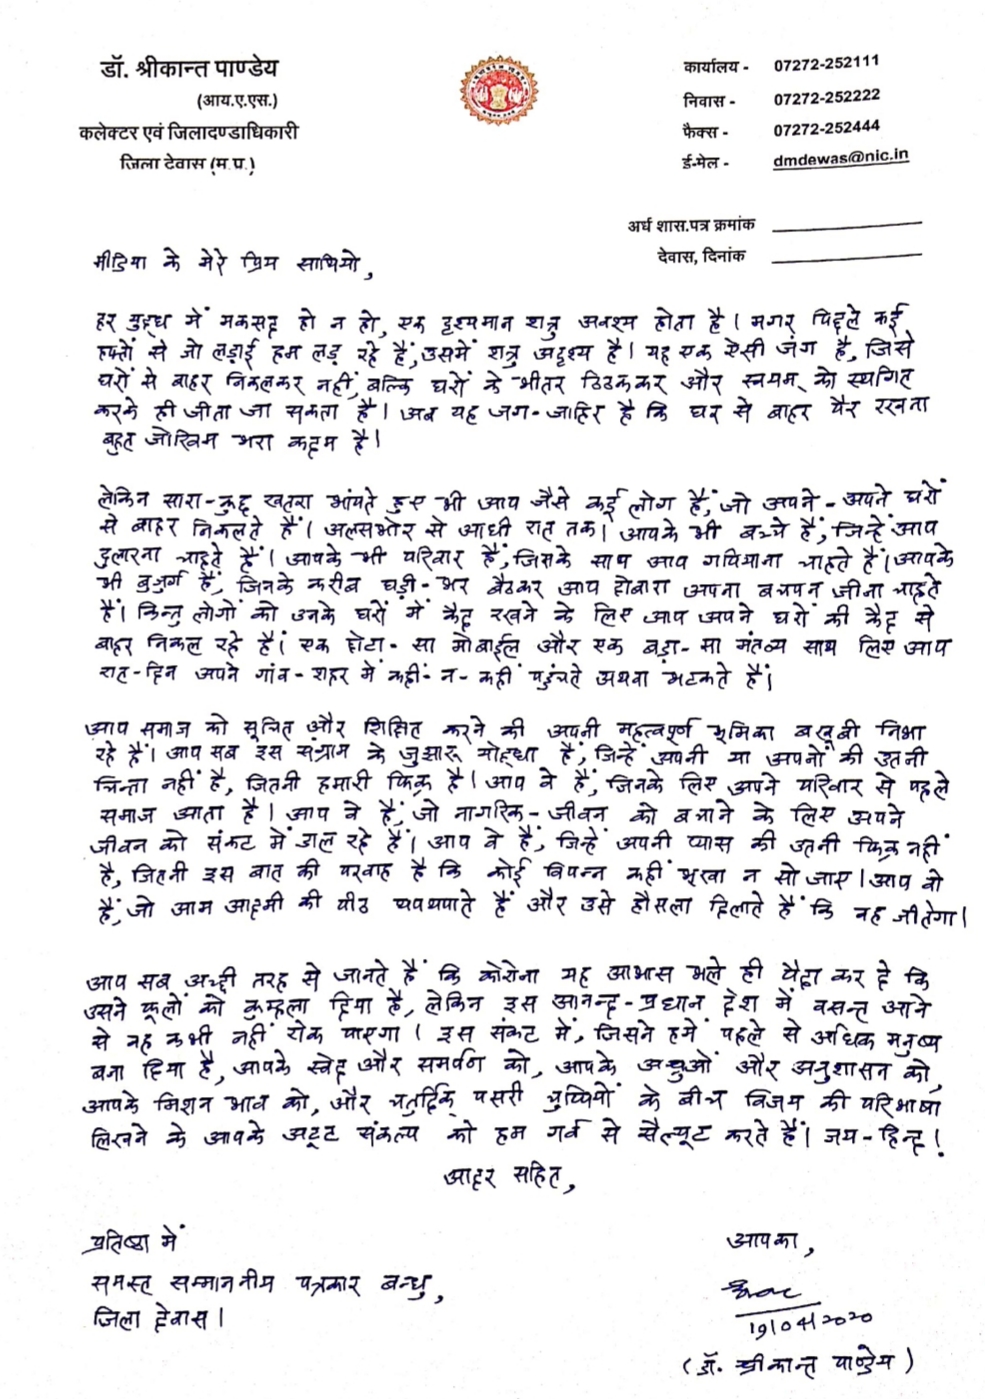 डॉ. श्रीकान्त पाण्डेय
(आय.ए.एस.)
कलेक्टर एवं जिलादण्डाधिकारी
जिला देवास (म.प्र.)
कार्यालय - 07272-252111
निवास - 07272-252222
फैक्स - 07272-252444
ई-मेल - dmdewas@nic.in
अर्ध शास.पत्र क्रमांक
देवास, दिनांक
मीडिया के मेरे प्रिय साथियो,
हर युद्ध में मकसद हो न हो, एक दृश्यमान शत्रु अवश्य होता है। मगर पिछले कई
हफ्तों से जो लड़ाई हम लड़ रहे हैं, उसमें शत्रु अदृश्य है। यह एक ऐसी जंग है, जिसे
घरों से बाहर निकलकर नहीं, बल्कि घरों के भीतर ठिठककर और स्वयम् को स्थगित
करके ही जीता जा सकता है। अब यह जग-जाहिर है कि घर से बाहर पैर रखना
बहुत जोखिम भरा कदम है।
लेकिन सारा-कुछ खतरा भांपते हुए भी आप जैसे कई लोग हैं, जो अपने-अपने घरों
से बाहर निकलते हैं। अलसभोर से आधी रात तक। आपके भी बच्चे हैं, जिन्हें आप
दुलारना चाहते हैं। आपके भी परिवार हैं, जिसके साथ आप गपियाना चाहते हैं। आपके
भी बुजुर्ग हैं, जिनके करीब घड़ी-भर बैठकर आप दोबारा अपना बचपन जीना चाहते
हैं। किन्तु लोगों को उनके घरों में कैद रखने के लिए आप अपने घरों की कैद से
बाहर निकल रहे हैं। एक छोटा-सा मोबाईल और एक बड़ा-सा मंतव्य साथ लिए आप
रात-दिन अपने गांव-शहर में कहीं-न-कहीं पहुंचते अथवा भटकते हैं।
आप समाज को सूचित और शिक्षित करने की अपनी महत्वपूर्ण भूमिका बखूबी निभा
रहे हैं। आप सब इस संग्राम के जुझारू योद्धा हैं, जिन्हें अपनी या अपनों की उतनी
चिन्ता नहीं है, जितनी हमारी फिक्र है। आप वे हैं, जिनके लिए अपने परिवार से पहले
समाज आता है। आप वे हैं, जो नागरिक-जीवन को बचाने के लिए अपने
जीवन को संकट में डाल रहे हैं। आप वे हैं, जिन्हें अपनी प्यास की उतनी फिक्र नहीं
है, जितनी इस बात की परवाह है कि कोई विपन्न कहीं भूखा न सो जाए। आप वो
हैं, जो आम आदमी की पीठ थपथपाते हैं और उसे हौसला दिलाते हैं कि वह जीतेगा।
आप सब अच्छी तरह से जानते हैं कि कोरोना यह आभास भले ही पैदा कर दे कि
उसने फूलों को कुम्हला दिया है, लेकिन इस आनन्द-प्रधान देश में वसन्त आने
से वह कभी नहीं रोक पाएगा। इस संकट में, जिसने हमें पहले से अधिक मनुष्य
बना दिया है, आपके स्नेह और समर्पण को, आपके अश्रुओं और अनुशासन को,
आपके मिशन भाव को, और चतुर्दिक् पसरी चुप्पियों के बीच विजय की परिभाषा
लिखने के आपके अटूट संकल्प को हम गर्व से सैल्यूट करते हैं। जय-हिन्द!
आदर सहित,
प्रतिष्ठा में
समस्त सम्माननीय पत्रकार बन्धु,
जिला देवास।
आपका,
19/04/2020
(डॉ. श्रीकान्त पाण्डेय)